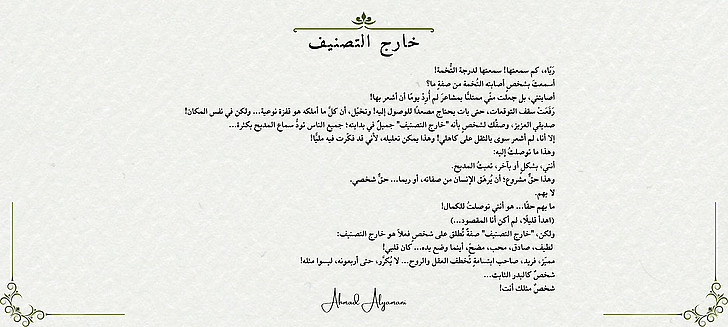 خارج التصنيف
رَبّاه، كم سمعتها! سمعتها لدرجة التُّخمة!
أسمعتَ بشخصٍ أصابته التُخمة من صفةٍ ما؟
أصابتني، بل جعلَت منّي ممتلئًا بمشاعرَ لم أُرِدْ يومًا أن أشعر بها!
رَفَعَتْ سقف التوقعات، حتى بات يحتاج مصعدًا للوصول إليه! وتخيّل، أن كلَّ ما أملكه هو قفزة نوعية... ولكن في نفس المكان!
صديقي العزيز، وصفُك لشخصٍ بأنه "خارج التصنيف" جميلٌ في بدايته؛ جميع الناس تودُّ سماع المديح بكثرة...
إلا أنا، لم أشعر سوى بالثقل على كاهلي! وهذا يمكن تعليله، لأنّي قد فكّرت فيه مليًّا!
وهذا ما توصلتُ إليه:
أنني، بشكلٍ أو بآخر، تعبتُ المديح.
وهذا حقٌّ مشروع؛ أن يُرهَق الإنسان من صفاته، أو ربما... حقٌّ شخصي.
لا يهم.
ما يهم حقًا... هو أنني توصلتُ للكمال!
(اهدأ قليلًا، لم أكن أنا المقصود...)
ولكن، "خارج التصنيف" صفةٌ تُطلق على شخصٍ فعلاً هو خارج التصنيف:
لطيف، صادق، محب، مضحّ، أينما وضع يده... كان قلبي!
مميّز، فريد، صاحب ابتسامةٍ تُخطف العقل والروح... لا يُكرَّر، حتى أربعونه، ليسوا مثله!
شخصٌ كالبدر الثابت...
شخصٌ مثلك أنت!
Ahmad Alyamani